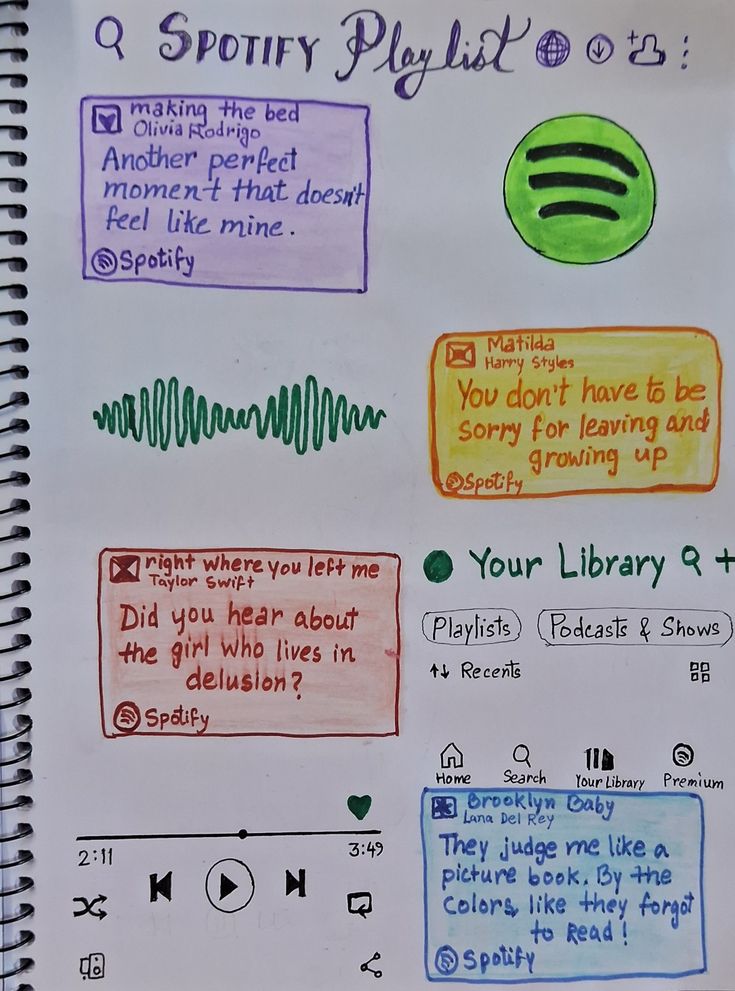 SPOTIFY Playlist
making the bed
Olivia Rodrigo
Another perfect
moment that doesn't
feel like mine.
Spotify
Matilda
Harry Styles
You don't have to be
sorry for leaving and
growing up
Spotify
right where you left me
Taylor Swift
Did you hear about
the girl who lives in
delusion?
Spotify
Your Library +
Playlists Podcasts & Shows
Recents
Home Search Your Library Premium
2:11 3:49
Brooklyn Baby
Lana Del Rey
They judge me like a
picture book. By the
colors, like they forgot
to Read!
Spotify